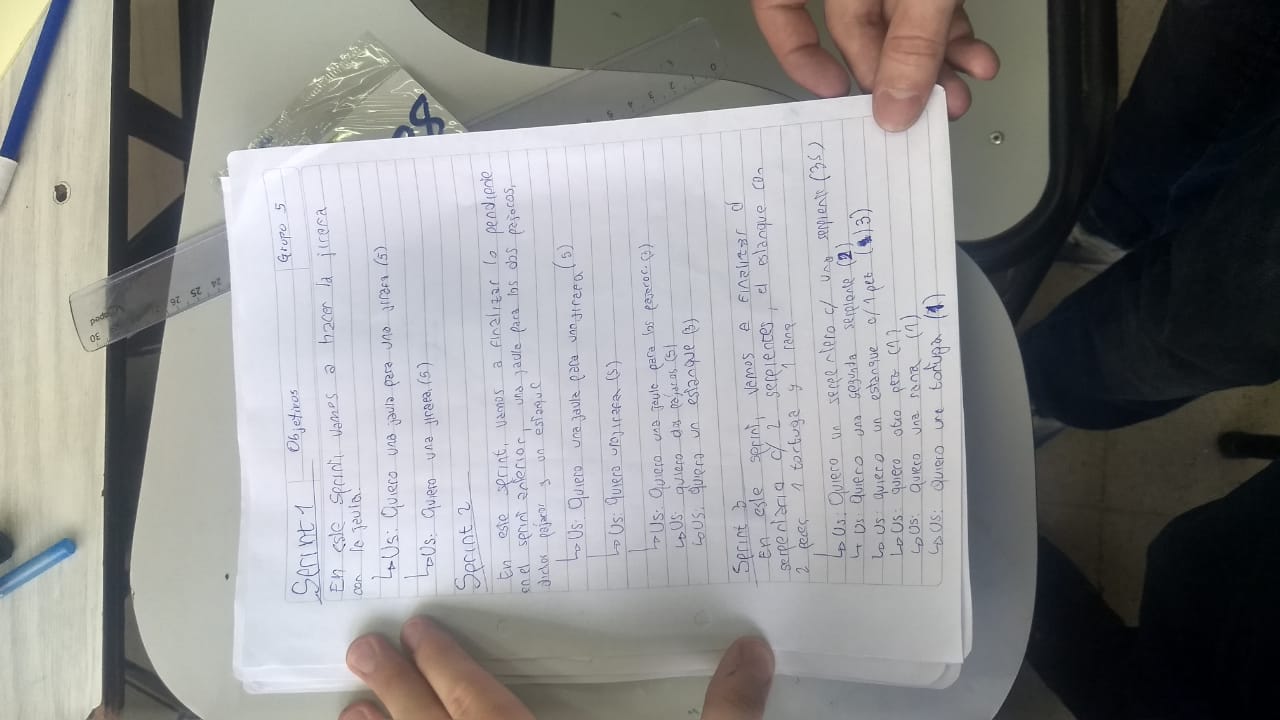 Grupo 5
Objetivos
Sprint 1
En este sprint, vamos a hacer la jirafa
con la jaula.
↳ Us: Quiero una jaula para una jirafa (5)
↳ Us: Quiero una jirafa (5)
Sprint 2
En este sprint, vamos a finalizar lo pendiente
en el sprint anterior, una jaula para los dos pajaros,
dichos pajaros y un estanque
↳ Us: Quiero una jaula para una jirafa (5)
↳ Us: Quiero una jirafa (5)
↳ Us: Quiero una jaula para los pajaros (3)
↳ Us: quiero dos pajaros (5)
↳ Us: quiero un estanque (3)
Sprint 3
En este sprint, vamos a finalizar el
serpentario c/ 2 serpientes, el estanque con
2 peces 1 tortuga y 1 rana
↳ Us: Quiero un serpentero c/ una serpiente (3,5)
↳ Us: Quiero una segunda serpiente (2)
↳ Us: quiero un estanque c/ 1 pez (3)
↳ Us: quiero otro pez (1)
↳ Us: quiero una rana (1)
↳ Us: quiero una tortuga (1)
30 26 25 24
6 5 4 3 2 1 0